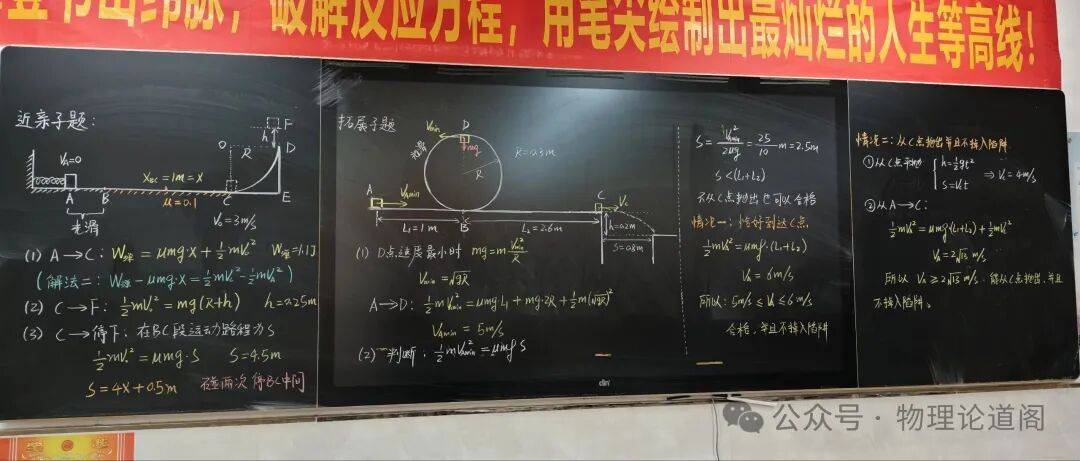 书山纬脉，破解反应方程，用笔尖绘制出最灿烂的人生等高线！
近亲子题：
F
h
D
O
R
V₀=0
X_BC=1m=X
A
B
μ=0.1
C
E
光滑
V₀=3m/s
(1) A→C：W弹=μmg·X+½mV₀²
(解法二：W弹-μmg·X=½mV₀²-½mV_A²)
(2) C→F：½mV₀²=mg(R+h) h=0.25m
(3) C→停下：在BC段运动路程为S
½mV₀²=μmg·S S=4.5m
S=4X+0.5m 碰两次停BC中间
拓展子题
Vmin
D
mg
R=0.3m
R
A
V_Amin
C
V₀
h=0.2m
L₁=1m
B
L₂=2.6m
S=0.8m
(1) D点速度最小时 mg=m Vmin²/R
Vmin=√gR
A→D：½mV_Amin²=μmgL₁+mg·2R+½m(√gR)²
V_Amin=5m/s
(2) 判断：½mV_Amin²=μmgS
S=V_A²/2μg=25/10 m=2.5m
S<(L₁+L₂)
不从C点抛出也可以合格
情况一：恰好到达C点，
½mV_A²=μmg·(L₁+L₂)
V_A=6m/s
所以：5m/s≤V_A≤6m/s
合格，并且不掉入陷阱
情况二：从C点抛出并且不掉入陷阱
①从C点平抛 { h=½gt²
S=V₀t ⇒V₀=4m/s
②从A→C：
½mV_A²=μmg(L₁+L₂)+½mV₀²
V_A=2√13 m/s
所以 V_A≥2√13 m/s：能从C点抛出，并且
不掉入陷阱。
公众号·物理论道阁